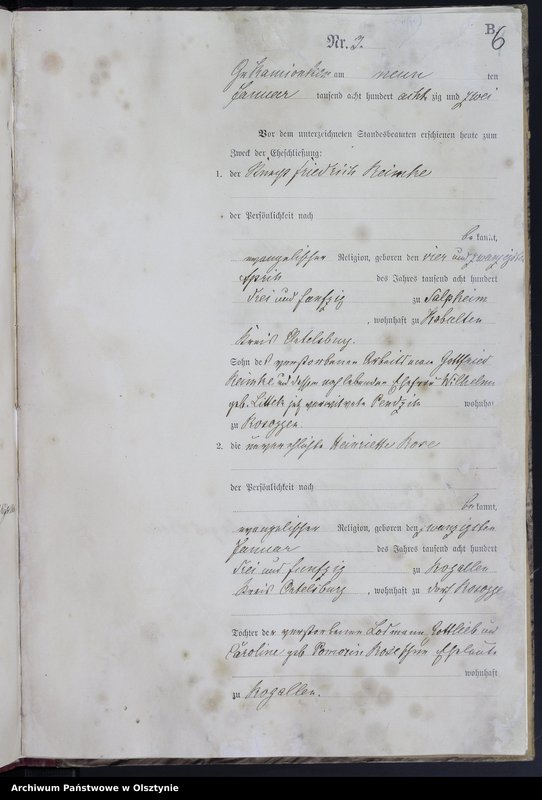 B.
6
Nr. 2.
Gr. Kamionken am neun ten
Januar tausend acht hundert acht zig und zwei
Vor dem unterzeichneten Standesbeamten erschienen heute zum
Zweck der Eheschließung:
1. der Knecht Friedrich Reimke
der Persönlichkeit nach
bekannt,
evangelischer Religion, geboren den vier und zwanzigsten
April des Jahres tausend acht hundert
drei und fünfzig zu Salpkeim
, wohnhaft zu Kobulten
Kreis Ortelsburg.
Sohn des verstorbenen Arbeitsmann Gottfried
Reimke und dessen noch lebenden Ehefrau Wilhelmine
geb. Littek jetz verwitwete wohnhaft
zu Rosoggen
2. die unverehelichte Henriette Rose
der Persönlichkeit nach
bekannt,
evangelischer Religion, geboren den zwanzigsten
Januar des Jahres tausend acht hundert
drei und fünfzig zu Rogallen
Kreis Ortelsburg, wohnhaft zu Dorf Rosoggen
Tochter der verstorbenen Losmann Gottlieb und
Caroline geb. Rose'schen Eheleute
wohnhaft
zu Rogallen.
Archiwum Państwowe w Olsztynie